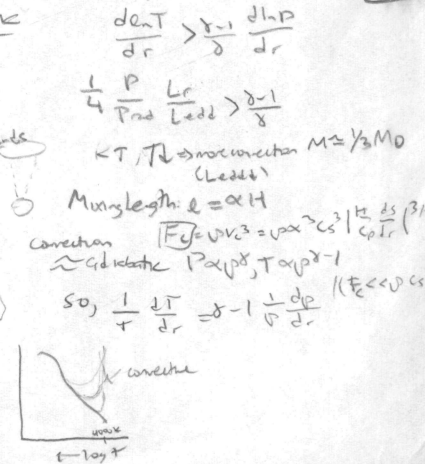 K
dlnT/dr > γ-1/γ dlnP/dr
1/4 P/Prad Lr/Ledd > γ-1/γ
KT, T↓ ⇒ more convection M≈1/3 M⊙
(Ledd↓)
Mixing Length: ℓ = αH
convection Fc = ρvc³ = ρα³cs³ | H/cp ds/dr |^3/
≈ adiabatic P∝ρ^γ, T∝ρ^γ-1
// (Fc << ρcs
so, 1/T dT/dr = γ-1 1/ρ dρ/dr
convective
4000K
← log T